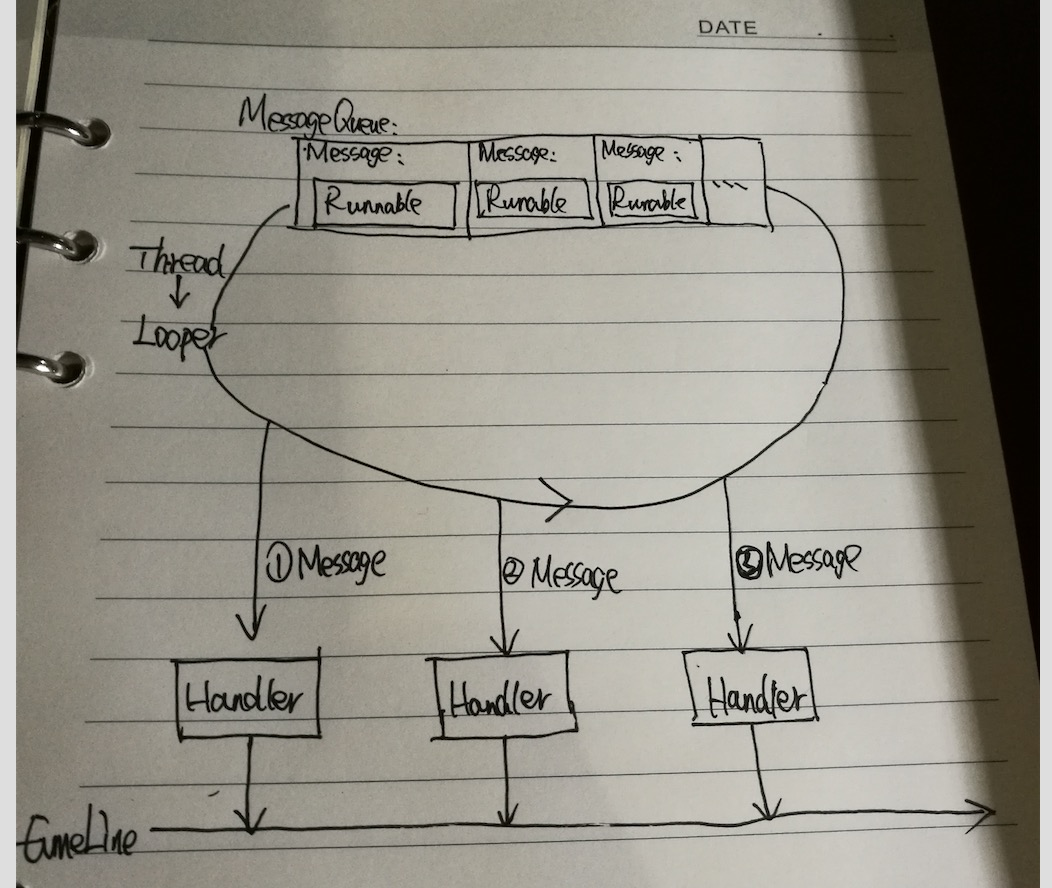 DATE . .
MessageQueue:
Message: Message: Message: ...
Runnable Runable Runable
Thread
Looper
① Message ② Message ③ Message
Handler Handler Handler
TimeLine